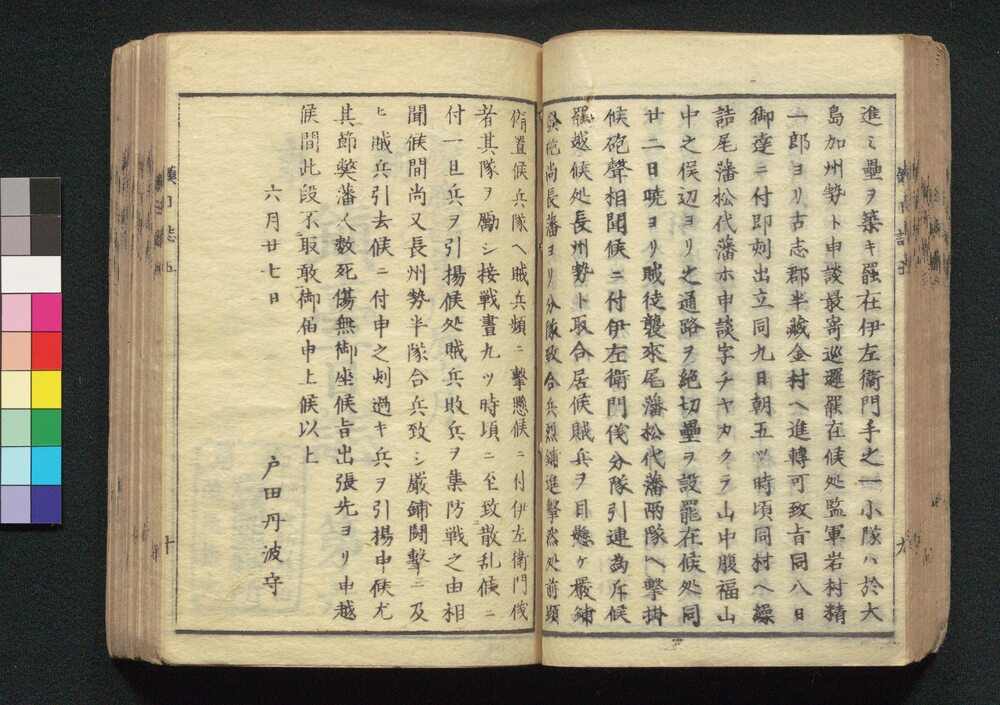 進ミ壘ヲ築キ罷在伊左衞門手之一小隊ハ於大
島加州勢ト申談最寄巡邏罷在候処監軍岩村精
一郎ヨリ古志郡半蔵金村ヘ進轉可致旨同八日
御達ニ付即刻出立同九日朝五ツ時頃同村ヘ繰
詰尾藩松代藩ホ申談字チヤカクラ山中腹福山
中之俣辺ヨリ之通路ヲ絶切壘ヲ設罷在候処同
廿二日曉ヨリ賊徒襲來尾藩松代藩兩隊ヘ擊掛
候砲聲相聞候ニ付伊左衞門儀分隊引連為斥候
罷越候処長州勢ト取合居候賊兵ヲ目懸ケ嚴鏽
發砲尚長藩ヨリ分隊致合兵烈鏽進擊然处前顕
備置候兵隊ヘ賊兵頻ニ擊懸候ニ付伊左衛門儀
者其隊ヲ勵シ接戦晝九ツ時頃ニ至致散乱候ニ
付一旦兵ヲ引揚候処賊兵敗兵ヲ集防戦之由相
聞候間尚又長州勢半隊合兵致シ嚴鏽闘擊ニ及
ヒ賊兵引去候ニ付申之刻過キ兵ヲ引揚申候尤
其節獘藩人数死傷無御座候旨出張先ヨリ申越
候間此段不取敢御届申上候以上
六月廿七日
戸田丹波守
九
十